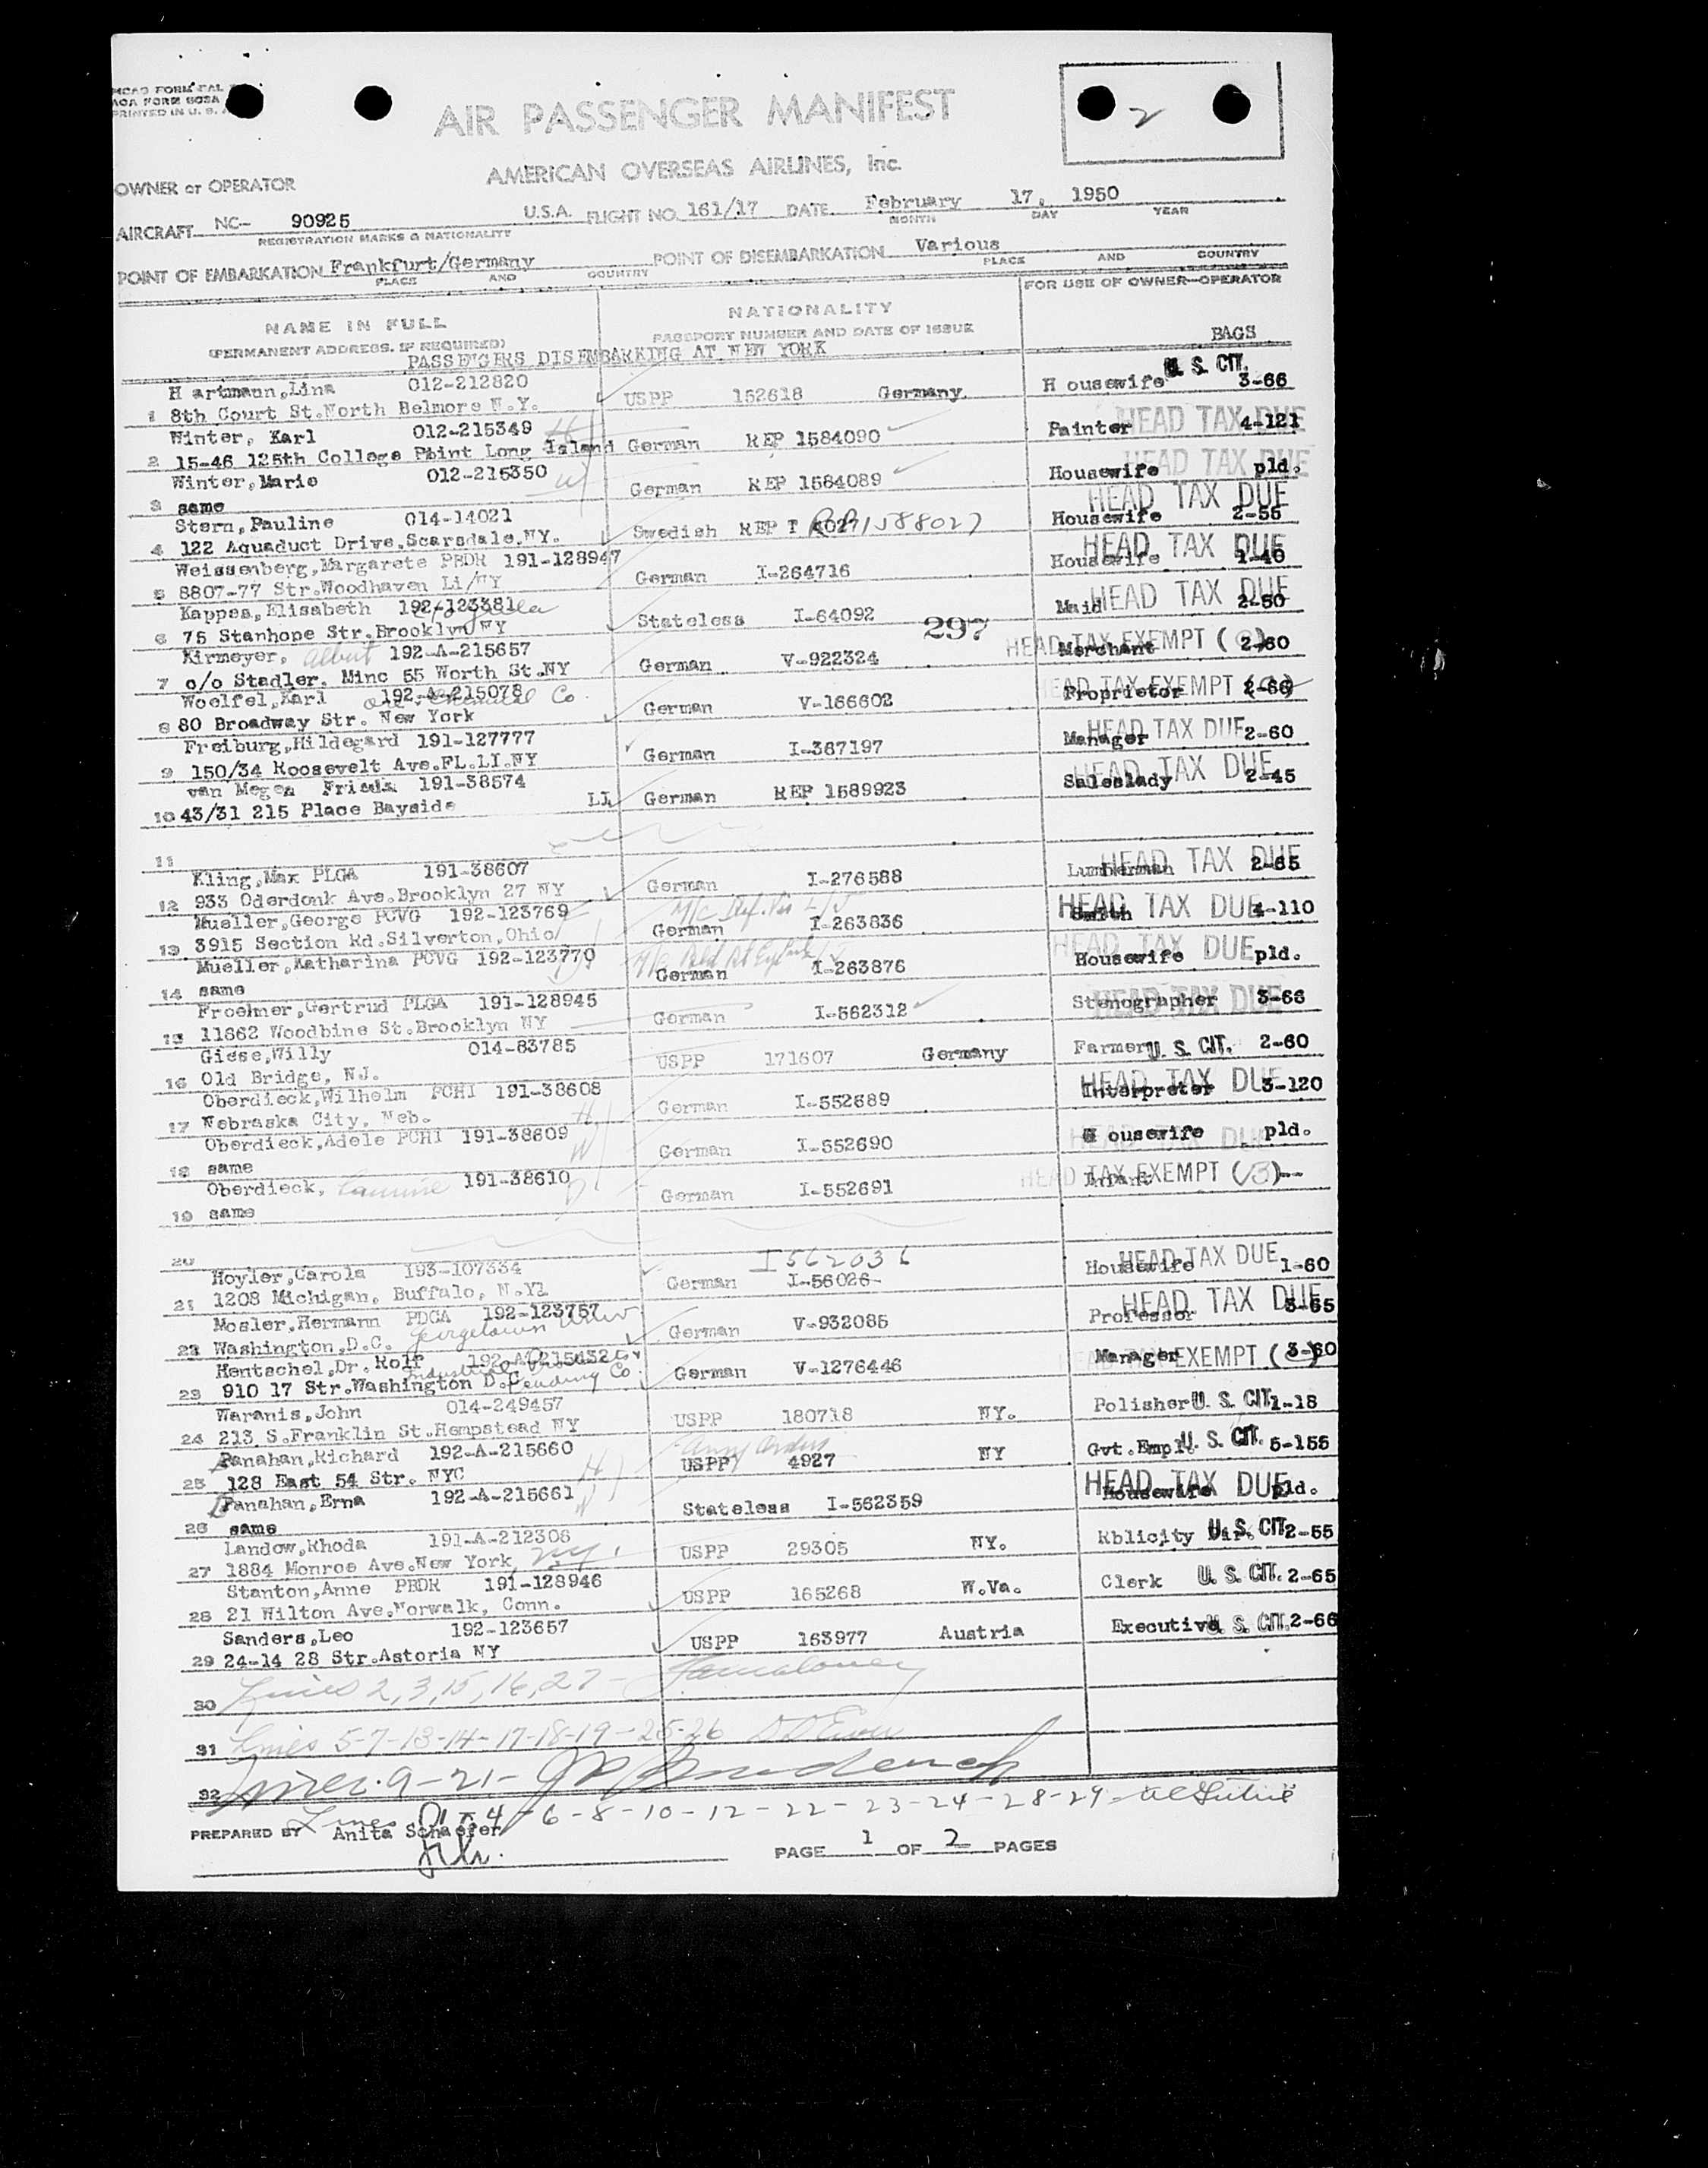 AOA FORM 603A
PRINTED IN U. S. A
AIR PASSENGER MANIFEST
2
AMERICAN OVERSEAS AIRLINES, Inc.
OWNER or OPERATOR
AIRCRAFT NC- 90925 U.S.A. FLIGHT NO. 161/17 DATE February 17, 1950
REGISTRATION MARKS & NATIONALITY MONTH DAY YEAR
POINT OF EMBARKATION Frankfurt/Germany POINT OF DISEMBARKATION Various
PLACE AND COUNTRY PLACE AND COUNTRY
FOR USE OF OWNER-OPERATOR
NAME IN FULL NATIONALITY
(PERMANENT ADDRESS. IF REQUIRED) PASSPORT NUMBER AND DATE OF ISSUE BAGS
PASSENGERS DISEMBARKING AT NEW YORK
H artmann,Lina 012-212820 U. S. CIT.
1 8th Court St.North Belmore N.Y. USPP 152618 Germany. H ousewife 3-66
Winter, Karl 012-215349 H HEAD TAX DUE
2 15-46 125th College Point Long Island German REP 1584090 Painter 4-121
Winter,Marie 012-215350 W HEAD TAX DUE
3 same German REP 1584089 Housewife pld.
Stern,Pauline 014-14021 HEAD TAX DUE
4 122 Aquaduct Drive,Scarsdale,NY. Swedish REP T 4027 RP1588027 Housewife 2-55
Weissenberg,Margarete PBDR 191-128947 HEAD TAX DUE
5 8807-77 Str.Woodhaven Li/NY German I-264716 Housewife 1-40
Kappes,Elisabeth 192-123381 HEAD TAX DUE
6 75 Stanhope Str.Brooklyn NY Stateless I-64092 Maid 2-50
297
Kirmeyer, Albert 192-A-215657 HEAD TAX EXEMPT
7 c/o Stadler. Minc 55 Worth St.NY German V-922324 Merchant 2-60
Woelfel,Karl 192-A-215078 Chemical Co. HEAD TAX EXEMPT
8 80 Broadway Str. New York German V-166602 Proprietor 2-66
Freiburg,Hildegard 191-127777 HEAD TAX DUE
9 150/34 Roosevelt Ave.FL.LI.NY German I-387197 Manager 2-60
van Megen Frieda 191-38574 HEAD TAX DUE
10 43/31 215 Place Bayside LI German REP 1589923 Saleslady 2-45
11
Kling,Max PLGA 191-38607 HEAD TAX DUE
12 933 Oderdonk Ave.Brooklyn 27 NY German I-276588 Lumberman 2-65
Mueller,George PCVG 192-123769 HEAD TAX DUE
13 3915 Section Rd.Silverton,Ohio German I-263836 Smith 4-110
Mueller,Katharina PCVG 192-123770 HEAD TAX DUE
14 same German I-263876 Housewife pld.
Froehner,Gertrud PLGA 191-128945 HEAD TAX DUE
15 11862 Woodbine St.Brooklyn NY German I-562312 Stenographer 3-66
Giese,Willy 014-83785 U. S. CIT.
16 Old Bridge, NJ. USPP 171607 Germany Farmer 2-60
Oberdieck,Wilhelm PCHI 191-38608 HEAD TAX DUE
17 Nebraska City, Neb. H German I-552689 Interpreter 3-120
Oberdieck,Adele PCHI 191-38609 HEAD TAX DUE
18 same W German I-552690 H ousewife pld.
Oberdieck, 191-38610 HEAD TAX EXEMPT (3)
19 same German I-552691 Infant --
20
Hoyler,Carola 193-107334 I562036 HEAD TAX DUE
21 1208 Michigan, Buffalo, N.Y. German I-56026- Housewife 1-60
Mosler,Hermann PDCA 192-123757 HEAD TAX DUE
22 Washington,D.C. Georgetown Univ German V-932085 Professor 3-65
Hentschel,Dr. Rolf 192-A-215632 EXEMPT
23 910 17 Str.Washington D.C. German V-1276446 Manager 3-60
Waranis,John 014-249457 U. S. CIT.
24 213 S.Franklin St.Hempstead NY USPP 180718 NY. Polisher 1-18
Panahan,Richard 192-A-215660 Army Orders U. S. CIT.
25 128 East 54 Str. NYC H USPP 4927 NY Gvt.Empl. 5-155
Panahan,Erna 192-A-215661 HEAD TAX DUE
26 same W Stateless I-562359 Housewife pld.
Landow,Rhoda 191-A-212306 U. S. CIT.
27 1884 Monroe Ave.New York, N.Y. USPP 29305 NY. Rblicity Dir. 2-55
Stanton,Anne PBDR 191-128946 U. S. CIT.
28 21 Wilton Ave.Norwalk, Conn. USPP 165268 W.Va. Clerk 2-65
Sanders,Leo 192-123657 U. S. CIT.
29 24-14 28 Str.Astoria NY USPP 163977 Austria Executive 2-66
30 Lines 2,3,15,16,27-
31 Lines 5-7-13-14-17-18-19-25-26
32 Lines. 9-21-
Lines 1-4-6-8-10-12-22-23-24-28-29
PREPARED BY Anita Schaefer
PAGE 1 OF 2 PAGES